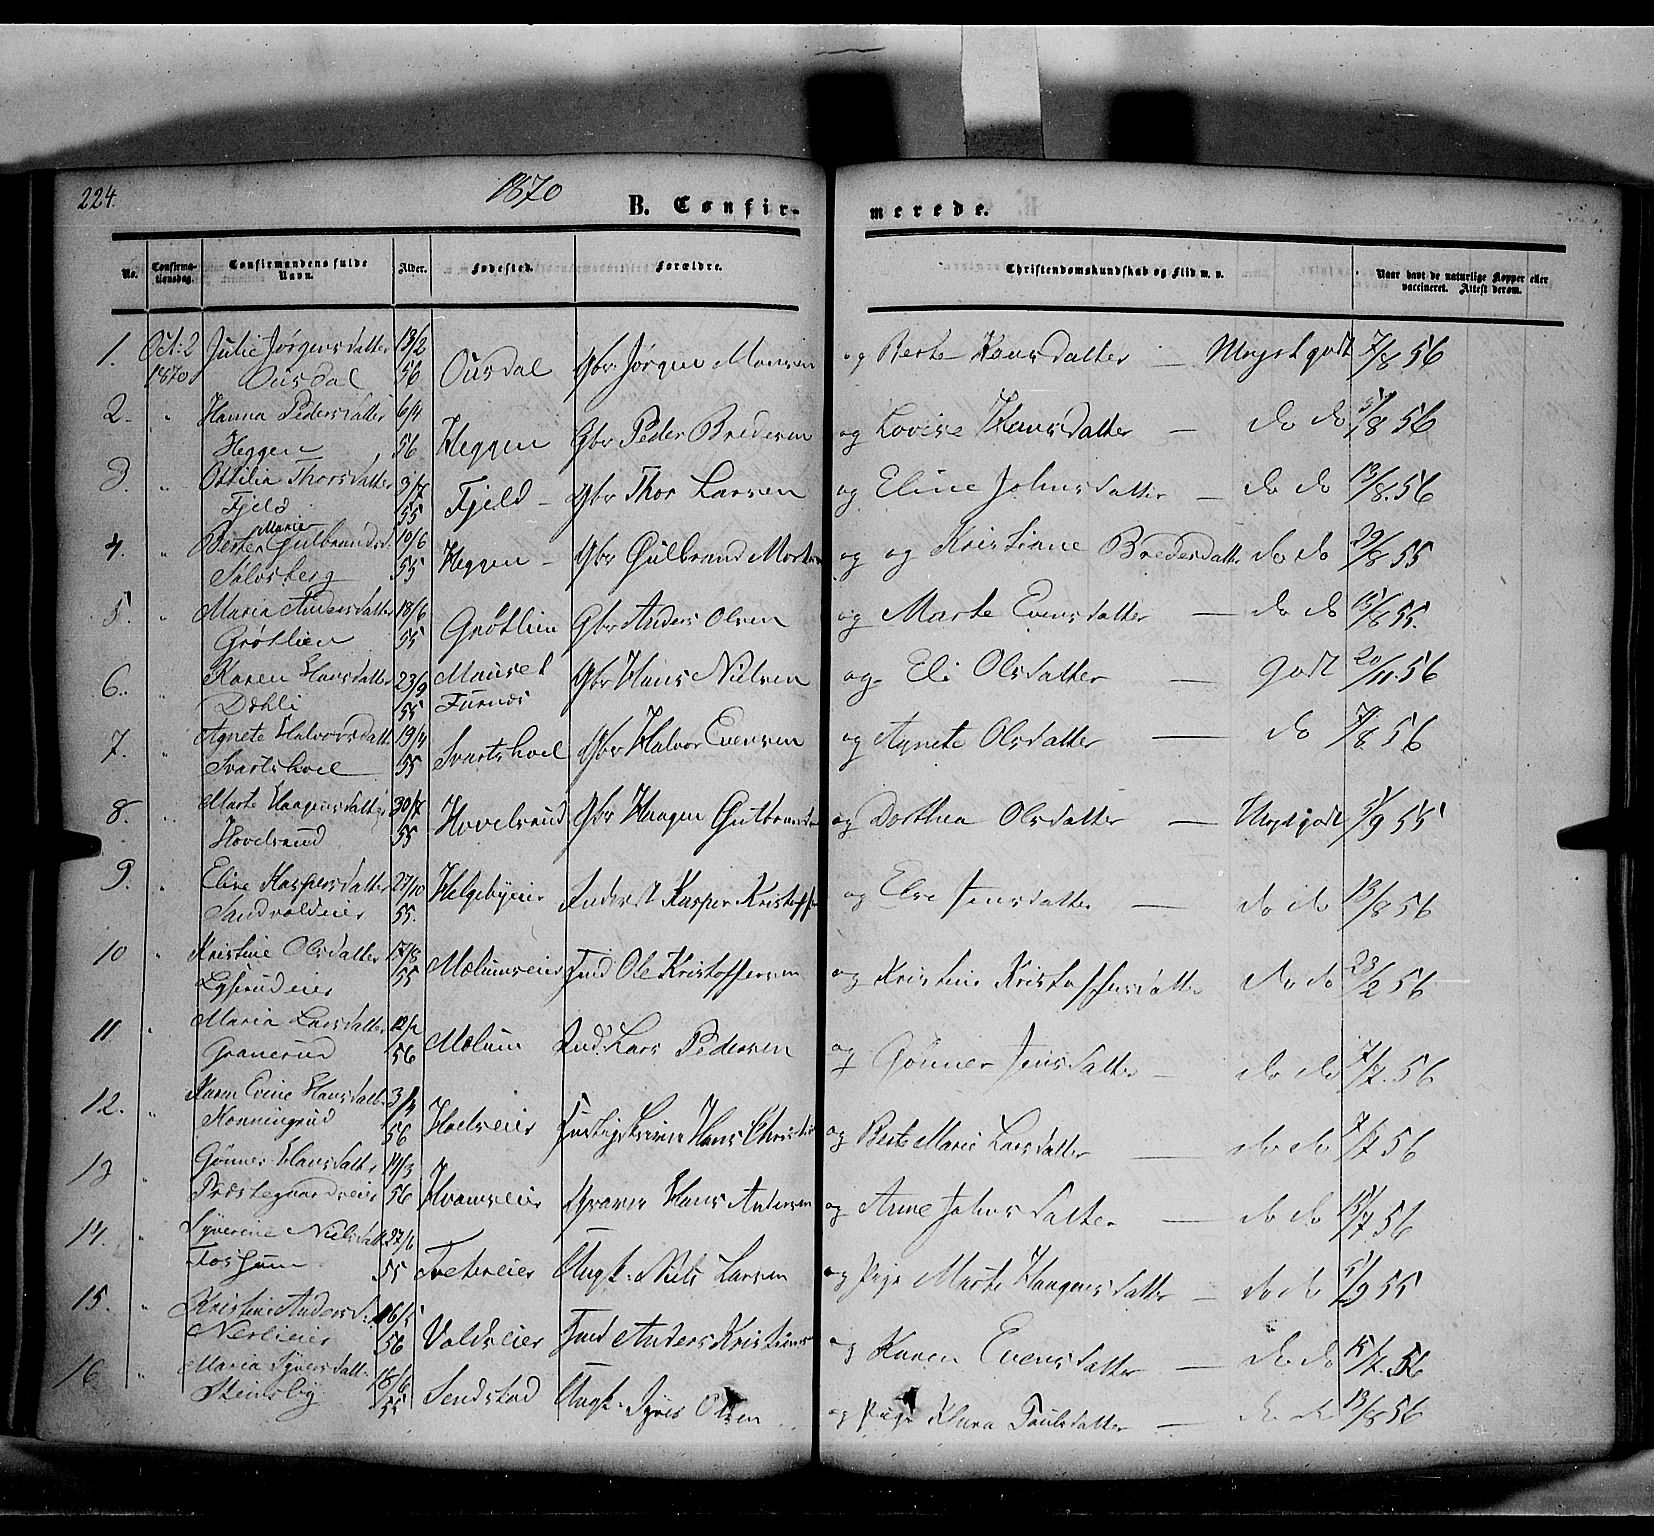 224.
1870
B. Confir-
merede.
No.
Confirma-
tionsdag.
Confirmandens fulde
Navn.
Alder.
Fødested.
Forældre.
Christendomskundskab og Flid m. v.
Naar havt de naturlige Kopper eller
vaccineret. Attest derom.
1. Oct. 2 Julie Jørgensdatter 13/2 Ousdal Gbr. Jørgen Monsen og Berte Hansdatter — Meget godt 7/8 56
1870 Ousdal 56
2. " Hanna Pedersdatter 6/4 Heggen Gbr Peder Bredesen og Lovise Hansdatter — do do 5/8 56
Heggen 56
3. " Ottilia Thorsdatter 3/7 Fjeld - Gbr Thor Larsen og Eline Johnsdatter — do do 13/8. 56
Fjeld 55
4. " Berte Marie Gulbrandsd. 10/6 Heggen - Gbr Gulbrand og og Kristine Bredesdatt. do do 29/8 55
Sølvsberg 55
5. " Maria Andersdatter 18/6 Grøtlien Gbr Anders Olsen og Marte Evensdatter — do do 15/8 55.
Grøtlien 55
6. " Karen Hansdatter 23/9 Gbr Hans Nielsen og Eli Olsdatter — godt 20/11. 56
Dæhli 55 Furnæs
7. " Agnete Halvorsdatt 19/4 Svartshoel Gbr Halvor Evensen og Agnete Olsdatter — do 7/8 56
Svartshoel 55
8. " Marte Haagensdatter 30/7 Hovelsrud Gbr Haagen Gulbrands og Dorthea Olsdatter — Megetgodt 5/9 55
Hovelsrud 55
9. " Eline Kaspersdatter 27/10 Helgebyeier Kasper Kristoffer og Else Jensdatter — do do 13/8 56
Sandvoldeier 55.
10 " Kristine Olsdatter 17/8 Mælumseier Ind Ole Kristoffersen og Kristine Kristoffersdatter do do 23/2 56
Lysrudeier 55
11. " Maria Larsdatter 56 Mælum Ind. Lars Pedersen og Gønner Jensdatter — do do 7/7. 56
Granerud
12. " Karen Eline Hansdatt. 56 Hoelseier Hans Christi og Berte Marie Larsdatter — do do 7/7 56
Honningrud
13 " Gønner Hansdatter 14/3 Hvamseier Graver Hans Andersen og Anne Johnsdatter — do do 15/7 56
Præstegaardseier 56
14. " Syverine Nielsdatt 27/6 Tvetereier Ungk. Niels Larsen og Pige Marte Haagensdatter — do do 5/9 55
Fossum 55
15. " Kristine Andersd. 16/5 Voldseier Ind Anders Kristians og Karen Evensdatter — do do 15/7. 56
Nerlieeier 56
16 " Maria Syversdatt. 18/6 Sendstad Ungk. Syver Olsen og Pige Klara Poulsdatter — do do 13/8 56
Stensby 55